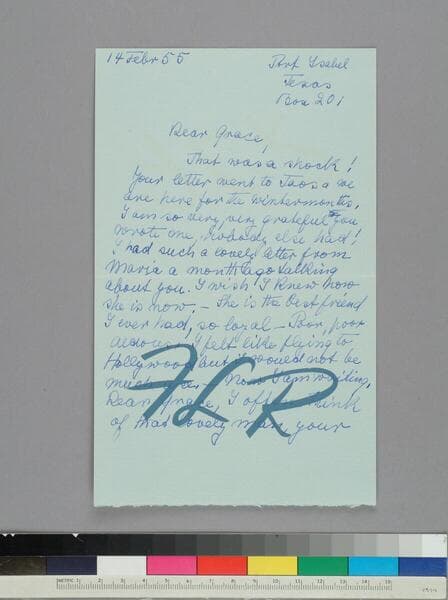 14 Febr 55
Port Isabel
Texas
Box 201
Dear Grace,
That was a shock!
Your letter went to Taos a we
are here for the wintermonths.
I am so very, very grateful you
wrote me. Nobody else had!
I had such a lovely letter from
Marja a month ago talking
about you. I wish I knew how
she is now. – She is the best friend
I ever had, so loyal – Poor, poor
I felt like flying to
Hollywood but it would not be
much Now I am writing.
Dear Grace, I often think
of that lovely man your
FLR